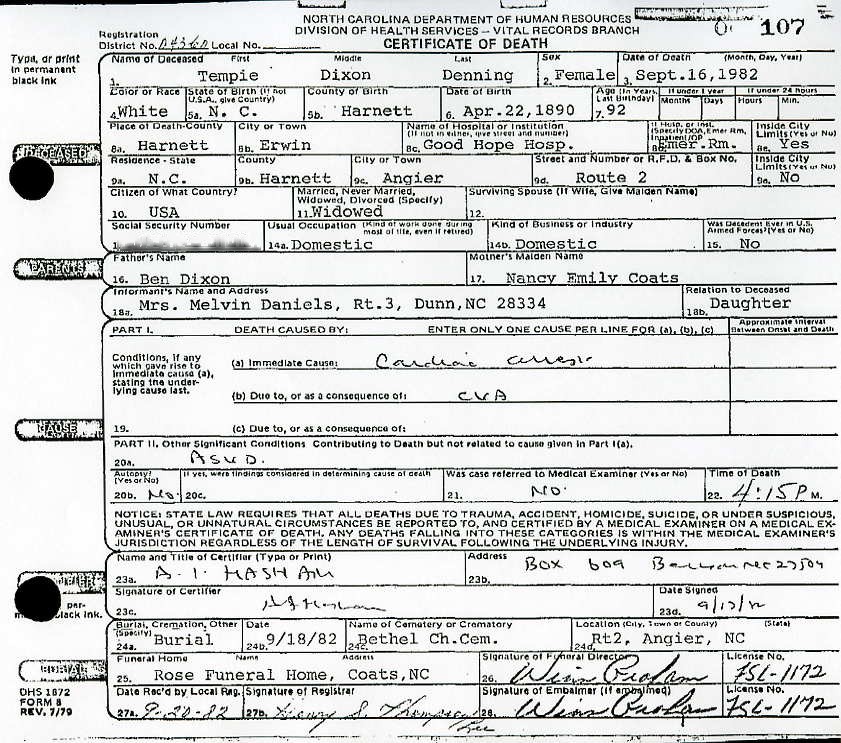 NORTH CAROLINA DEPARTMENT OF HUMAN RESOURCES
DIVISION OF HEALTH SERVICES – VITAL RECORDS BRANCH
CERTIFICATE OF DEATH
107
Registration
District No. Local No.
Type, or print
in permanent
black ink
Name of Deceased First Middle Last Sex Date of Death (Month, Day, Year)
1. Tempie Dixon Denning 2. Female 3. Sept.16,1982
Color or Race State of Birth (If not U.S.A., give Country) County of Birth Date of Birth Age (In Years, Last Birthday) If under 1 year If under 24 hours
Months Days Hours Min.
4. White 5a. N. C. 5b. Harnett 6. Apr.22,1890 7. 92
Place of Death-County City or Town Name of Hospital or Institution (If not in either, give street and number) If Hosp. or Inst. (Specify DOA, Emer Rm, Inpatient/OP Inside City Limits (Yes or No)
8a. Harnett 8b. Erwin 8c. Good Hope Hosp. Emer.Rm. 8e. Yes
DECEASED
Residence - State County City or Town Street and Number or R.F.D. & Box No. Inside City Limits (Yes or No)
9a. N.C. 9b. Harnett 9c. Angier 9d. Route 2 9e. No
Citizen of What Country? Married, Never Married, Widowed, Divorced (Specify) Surviving Spouse (If Wife, Give Maiden Name)
10. USA 11. Widowed 12.
Social Security Number Usual Occupation (Kind of work done during most of life, even if retired) Kind of Business or Industry Was Decedent Ever in U.S. Armed Forces? (Yes or No)
14a. Domestic 14b. Domestic 15. No
PARENTS
Father's Name Mother's Maiden Name
16. Ben Dixon 17. Nancy Emily Coats
Informant's Name and Address Relation to Deceased
18a. Mrs. Melvin Daniels, Rt.3, Dunn,NC 28334 18b. Daughter
PART I. DEATH CAUSED BY: ENTER ONLY ONE CAUSE PER LINE FOR (a), (b), (c) Approximate Interval Between Onset and Death
Conditions, if any
which gave rise to
immediate cause (a),
stating the under-
lying cause last.
(a) Immediate Cause: Cardiac arrest
(b) Due to, or as a consequence of: CVA
CAUSE
19. (c) Due to, or as a consequence of:
PART II. Other Significant Conditions Contributing to Death but not related to cause given in Part I(a).
20a. ASVD.
Autopsy? (Yes or No) If yes, were findings considered in determining cause of death Was case referred to Medical Examiner (Yes or No) Time of Death
20b. No. 20c. 21. No. 22. 4:15 P M.
NOTICE: STATE LAW REQUIRES THAT ALL DEATHS DUE TO TRAUMA, ACCIDENT, HOMICIDE, SUICIDE, OR UNDER SUSPICIOUS,
UNUSUAL, OR UNNATURAL CIRCUMSTANCES BE REPORTED TO, AND CERTIFIED BY A MEDICAL EXAMINER ON A MEDICAL EX-
AMINER'S CERTIFICATE OF DEATH. ANY DEATHS FALLING INTO THESE CATEGORIES IS WITHIN THE MEDICAL EXAMINER'S
JURISDICTION REGARDLESS OF THE LENGTH OF SURVIVAL FOLLOWING THE UNDERLYING INJURY.
Name and Title of Certifier (Type or Print) Address
23a. 23b. Box 609
Signature of Certifier Date Signed
23c. 23d.
black ink.
Burial, Cremation, Other (Specify) Date Name of Cemetery or Crematory Location (City, Town or County) (State)
24a. Burial 24b. 9/18/82 24c. Bethel Ch.Cem. 24d. Rt2, Angier, NC
BURIAL
Funeral Home Name Address Signature of Funeral Director License No.
25. Rose Funeral Home, Coats,NC 26. FSL-1172
DHS 1872
FORM 8
REV. 7/79
Date Rec'd by Local Reg. Signature of Registrar Signature of Embalmer (If embalmed) License No.
27a. 9-20-82 27b. Henry S. Thompson 28. FSL-1172